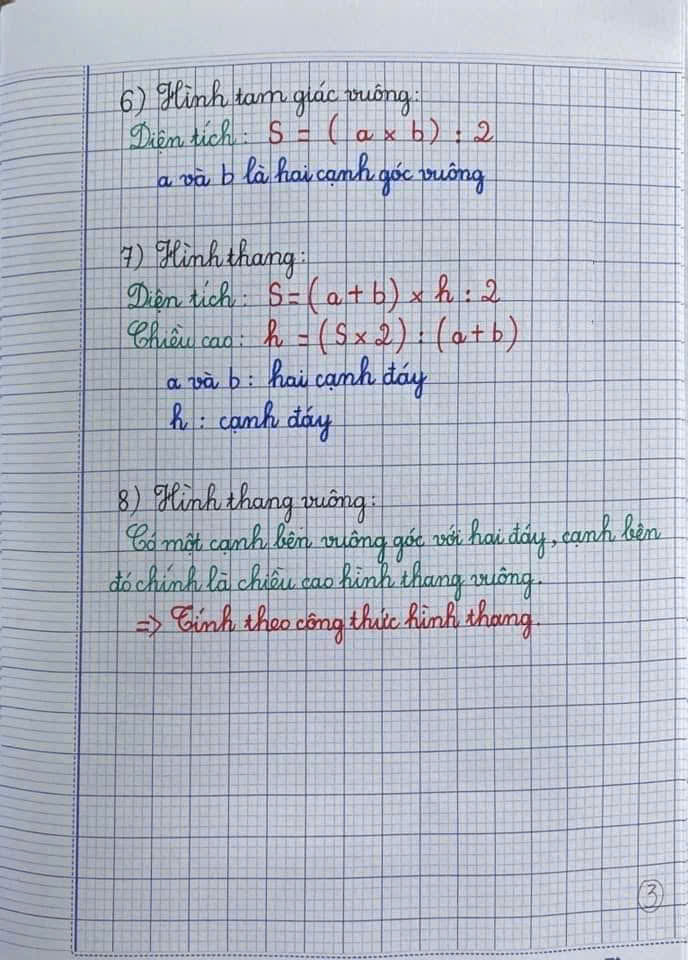 6) Hình tam giác vuông:
Diện tích: S = ( a x b ) : 2
a và b là hai cạnh góc vuông
7) Hình thang:
Diện tích: S = ( a + b ) x h : 2
Chiều cao: h = ( S x 2 ) : ( a + b )
a và b : hai cạnh đáy
h : cạnh đáy
8) Hình thang vuông:
Có một cạnh bên vuông góc với hai đáy, cạnh bên
đó chính là chiều cao hình thang vuông.
=> Tính theo công thức hình thang.
3